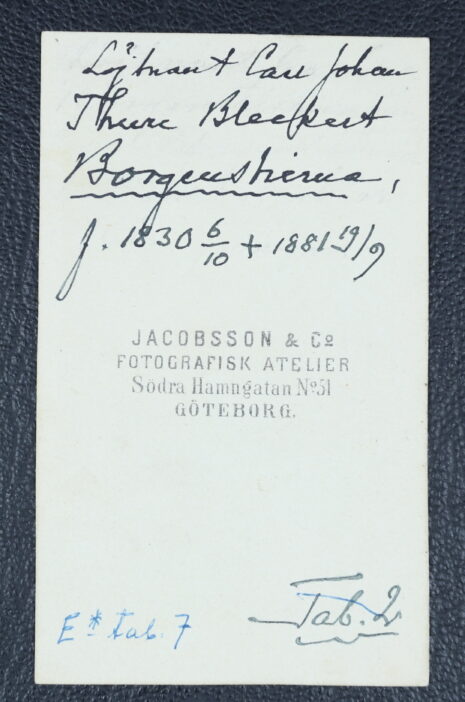 Löjtnant Carl Johan
Thure Bleckert
Borgenstierna,
f. 1830 6/10 + 1881 19/9
JACOBSSON & Cº
FOTOGRAFISK ATELIER
Södra Hamngatan Nº 51
GÖTEBORG.
E* tab. 7
Tab. 2